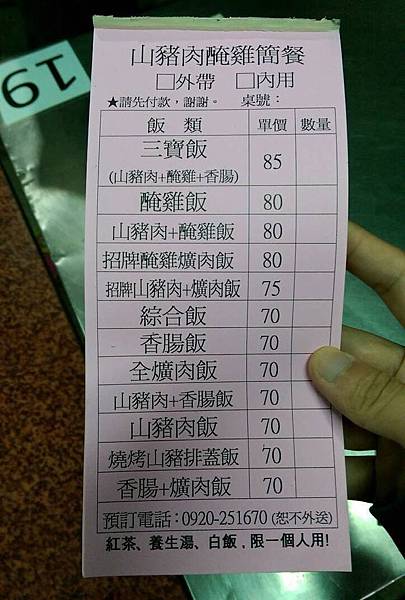 19
山豬肉醃雞簡餐
□外帶 □內用
★請先付款，謝謝。 桌號：
飯 類 單價 數量
三寶飯
(山豬肉+醃雞+香腸) 85
醃雞飯 80
山豬肉+醃雞飯 80
招牌醃雞爌肉飯 80
招牌山豬肉+爌肉飯 75
綜合飯 70
香腸飯 70
全爌肉飯 70
山豬肉+香腸飯 70
山豬肉飯 70
燒烤山豬排蓋飯 70
香腸+爌肉飯 70
預訂電話：0920-251670 (恕不外送)
紅茶、養生湯、白飯，限一個人用!